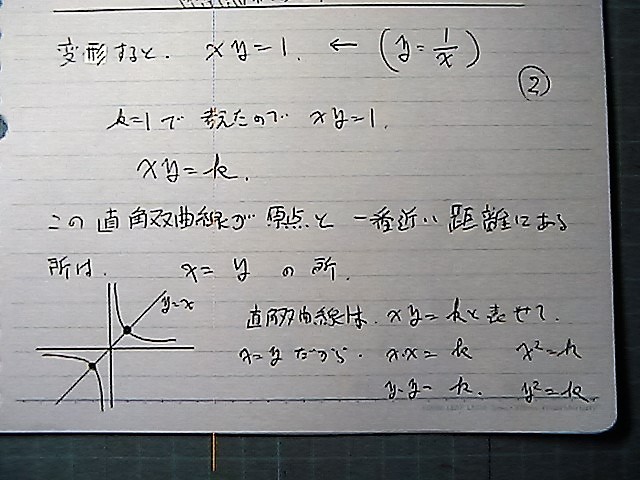 変形すると. xy=1. ← (y=1/x)
②
k=1で 考えたので xy=1.
xy=k.
この直角双曲線が原点と一番近い距離にある
所は. x=y の所.
y=x
直角双曲線は. xy=kと表せて.
x=yだから. x・x=k x²=k
y・y=k. y²=k.